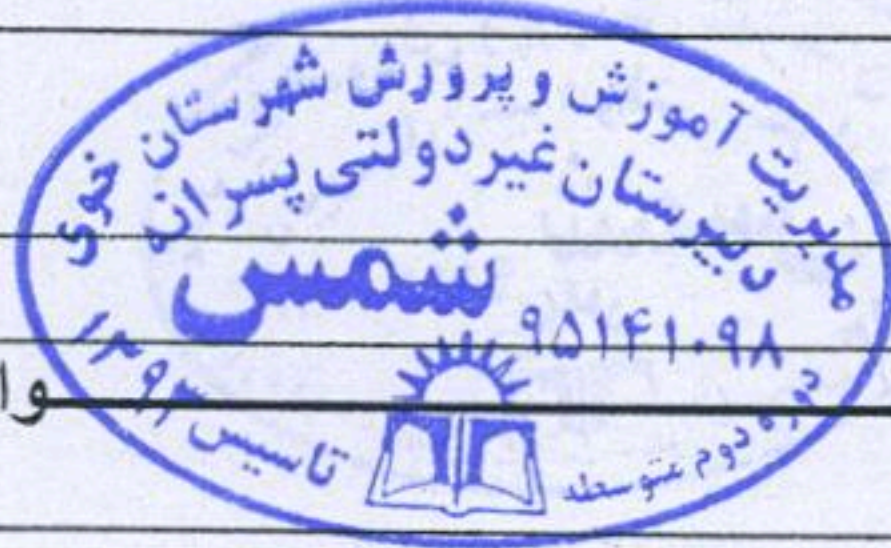 مدیریت آموزش و پرورش شهرستان خوی
دبیرستان غیر دولتی پسرانه
شمس
۹۵۱۴۱۰۹۸
دوره دوم متوسطه
تاسیس ۱۳۹۳
وا